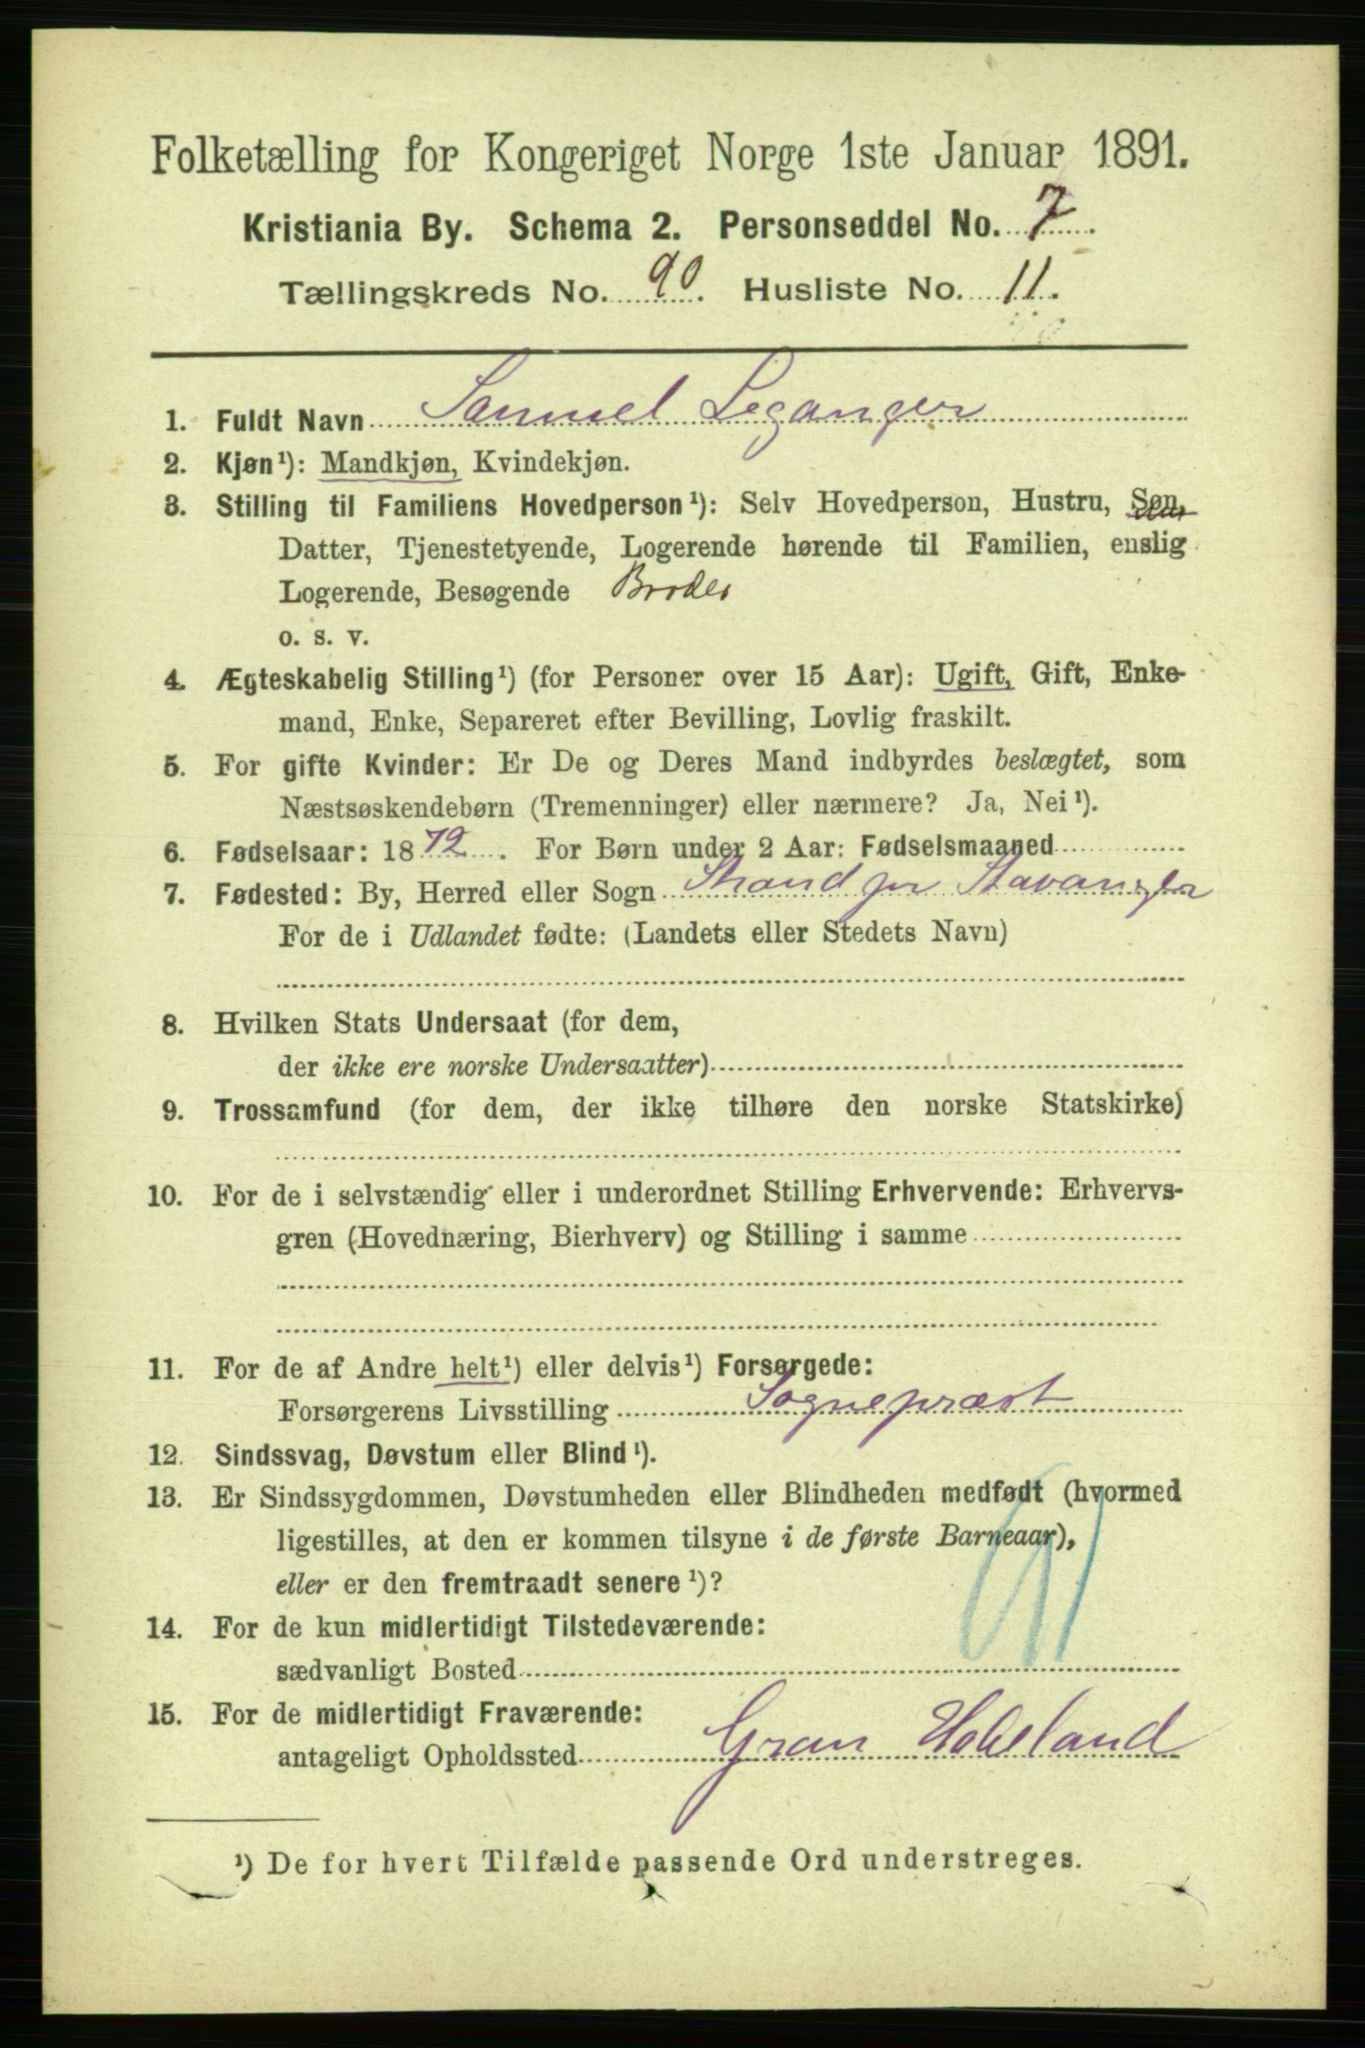 Folketælling for Kongeriget Norge 1ste Januar 1891.
Kristiania By. Schema 2. Personseddel No. 7.
Tællingskreds No. 90. Husliste No. 11.
1. Fuldt Navn Samuel Leganger
2. Kjøn¹): Mandkjøn, Kvindekjøn.
3. Stilling til Familiens Hovedperson¹): Selv Hovedperson, Hustru, Søn,
Datter, Tjenestetyende, Logerende hørende til Familien, enslig
Logerende, Besøgende Broder
o. s. v.
4. Ægteskabelig Stilling¹) (for Personer over 15 Aar): Ugift, Gift, Enke-
mand, Enke, Separeret efter Bevilling, Lovlig fraskilt.
5. For gifte Kvinder: Er De og Deres Mand indbyrdes beslægtet, som
Næstsøskendebørn (Tremenninger) eller nærmere? Ja, Nei¹).
6. Fødselsaar: 1872. For Børn under 2 Aar: Fødselsmaaned
7. Fødested: By, Herred eller Sogn Strand pr Stavanger
For de i Udlandet fødte: (Landets eller Stedets Navn)
8. Hvilken Stats Undersaat (for dem,
der ikke ere norske Undersaatter)
9. Trossamfund (for dem, der ikke tilhøre den norske Statskirke)
10. For de i selvstændig eller i underordnet Stilling Erhvervende: Erhvervs-
gren (Hovednæring, Bierhverv) og Stilling i samme
11. For de af Andre helt¹) eller delvis¹) Forsørgede:
Forsørgerens Livsstilling Sognepræst
12. Sindssvag, Døvstum eller Blind¹).
13. Er Sindssygdommen, Døvstumheden eller Blindheden medfødt (hvormed
ligestilles, at den er kommen tilsyne i de første Barneaar),
eller er den fremtraadt senere¹)?
14. For de kun midlertidigt Tilstedeværende:
sædvanligt Bosted
15. For de midlertidigt Fraværende:
antageligt Opholdssted Gran Hadeland
¹) De for hvert Tilfælde passende Ord understreges.